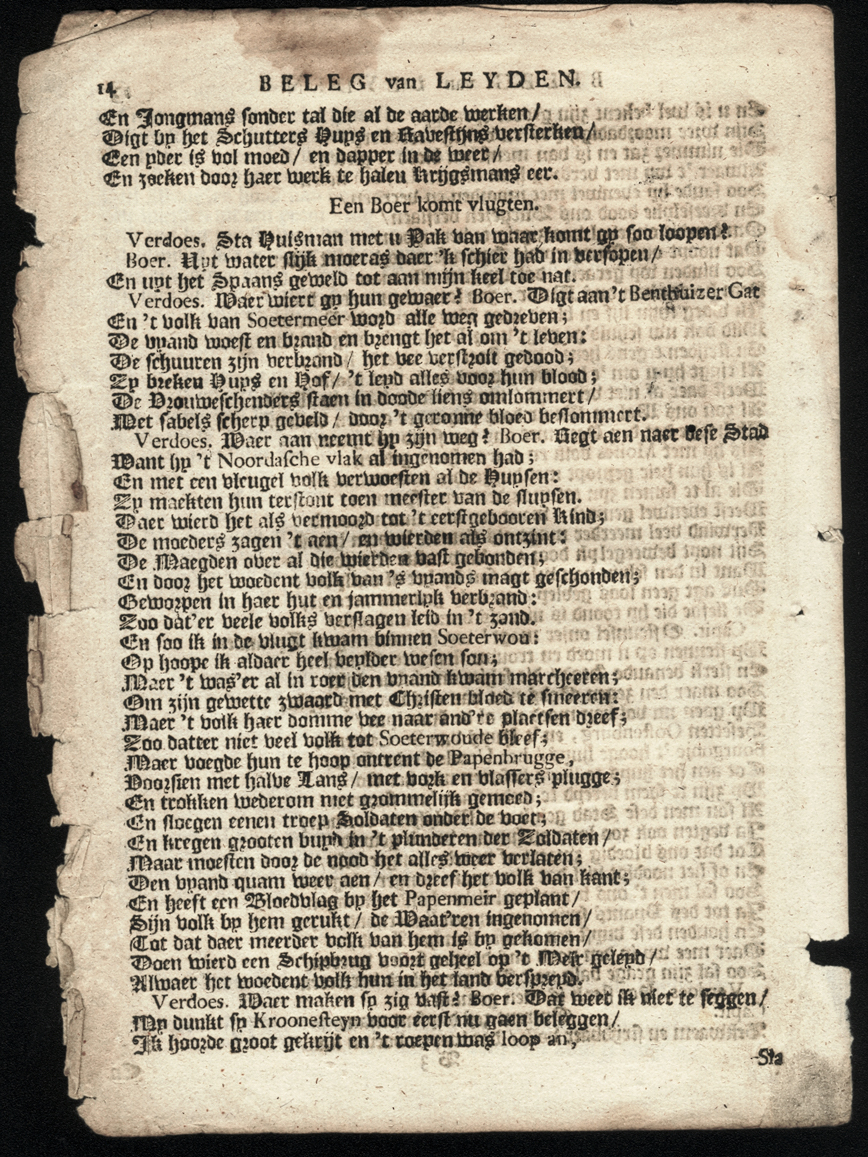 14 BELEG van LEYDEN.
En Jongmans sonder tal die al de aarde werken/
Digt by het Schutters Huys en Ravestijns versterken/
Een yder is vol moed/ en dapper in de weer/
En zoeken door haer werk te halen Krijgsmans eer.
Een Boer komt vlugten.
Verdoes. Sta Huisman met u Pak van waar komt gy soo loopen?
Boer. Uyt water slijk moeras daer 'k schier had in versopen/
En uyt het Spaans geweld tot aan mijn keel toe nat.
Verdoes. Waer wiert gy hun gewaer? Boer. Digt aan 't Benthuizer Gat
En 't volk van Soetermeer word alle weg gedreven;
De vyand woest en brand en brengt het al om 't leven:
De schuuren zijn verbrand/ het vee verstroit gedood;
Zy breken Huys en Hof/ 't leyd alles voor hun blood;
De Vrouweschenders staen in doode liens omlommert/
Met sabels scherp geveld/ door 't geronne bloed beslommert.
Verdoes. Waer aan neemt hy zijn weg? Boer. Regt aen naer dese Stad
Want hy 't Noordasche vlak al ingenomen had;
En met een vleugel volk verwoesten al de Huysen:
Zy maekten hun terstont toen meester van de sluysen.
Daer wierd het als vermoord tot 't eerstgebooren Kind;
De moeders zagen 't aen/ en wierden als ontzint:
De Maegden over al die wierden vast gebonden;
En door het woedent volk van 's vyands magt geschonden;
Geworpen in haer hut en jammerlyk verbrand:
Zoo dat'er veele volks verslagen leid in 't zand.
En soo ik in de vlugt kwam binnen Soeterwou:
Op hoope ik aldaer heel veylder wesen sou;
Maer 't was'er al in roer den vyand kwam marcheeren;
Om zijn gewette zwaard met Christen bloed te smeeren:
Maer 't volk haer domme vee naar and're plaetsen dreef;
Zoo datter niet veel volk tot Soeterwoude bleef;
Maer voegde hun te hoop ontrent de Papenbrugge,
Voorsien met halve Lans/ met vork en vlassers plugge;
En trokken wederom met grommelijk gemoed;
En sloegen eenen troep Soldaten onder de voet;
En kregen grooten buyh in 't plunderen der Zoldaten/
Maar moesten door de nood het alles weer verlaten;
Den vyand quam weer aen/ en dreef het volk van kant;
En heeft een Bloedvlag by het Papenmeir geplant/
Sijn volk by hem gerukt/ de Waat'ren ingenomen/
Tot dat daer meerder volk van hem is by gekomen/
Doen wierd een Schipbrug voort geheel op 't Meir geleyd/
Alwaer het woedent volk hun in het land verspreyd.
Verdoes. Waer maken sy zig vast? Boer. Dat weet ik niet te seggen/
My dunkt sy Kroonesteyn voor eerst nu gaen beleggen/
Ik hoorde groot gekrijt en 't roepen was loop an,
Sta